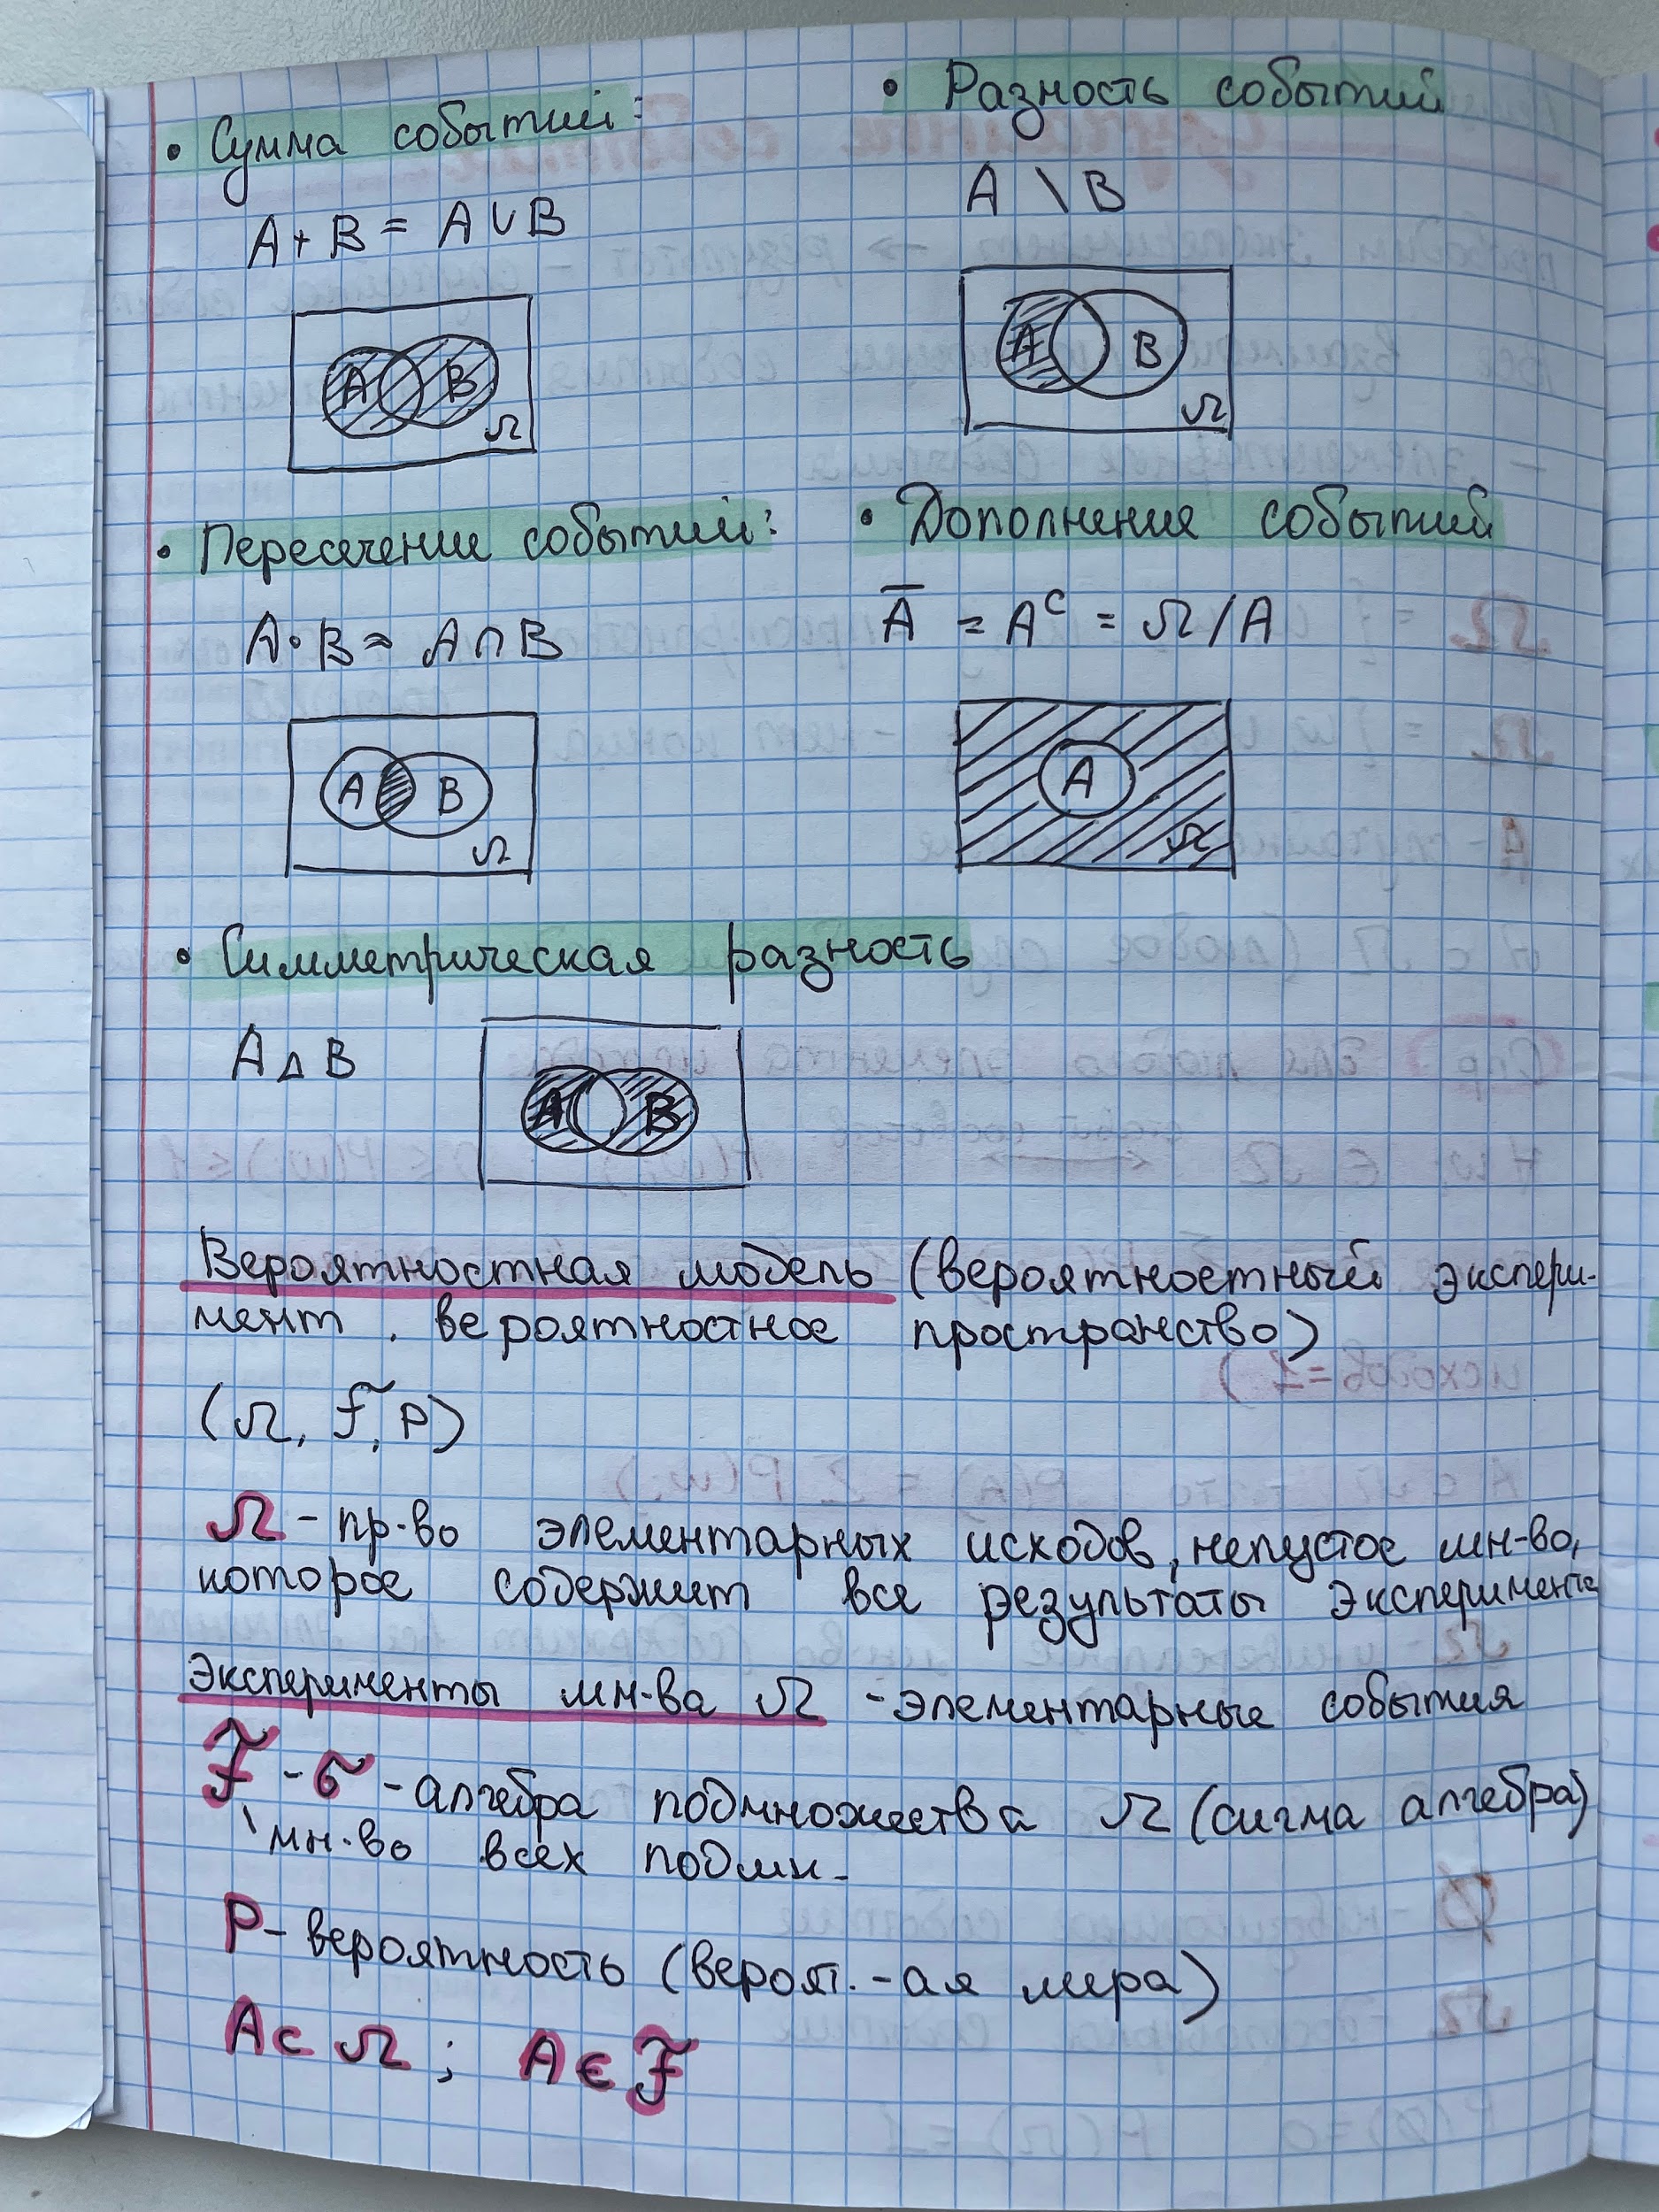 • Сумма событий:
A + B = A ∪ B
A B Ω
• Разность событий
A \ B
A B Ω
• Пересечение событий:
A · B = A ∩ B
A B Ω
• Дополнение событий
A̅ = Aᶜ = Ω / A
A Ω
• Симметрическая разность
A △ B
A B
Вероятностная модель (вероятностный экспери-
мент, вероятностное пространство)
(Ω, F, P)
Ω - пр-во элементарных исходов, непустое мн-во,
которое содержит все результаты эксперимента
Эксперименты мн-ва Ω - элементарные события
F - σ - алгебра подмножества Ω (сигма алгебра)
\ мн-во всех подмн.
P - вероятность (вероят.-ая мера)
A ⊂ Ω ; A ∈ F